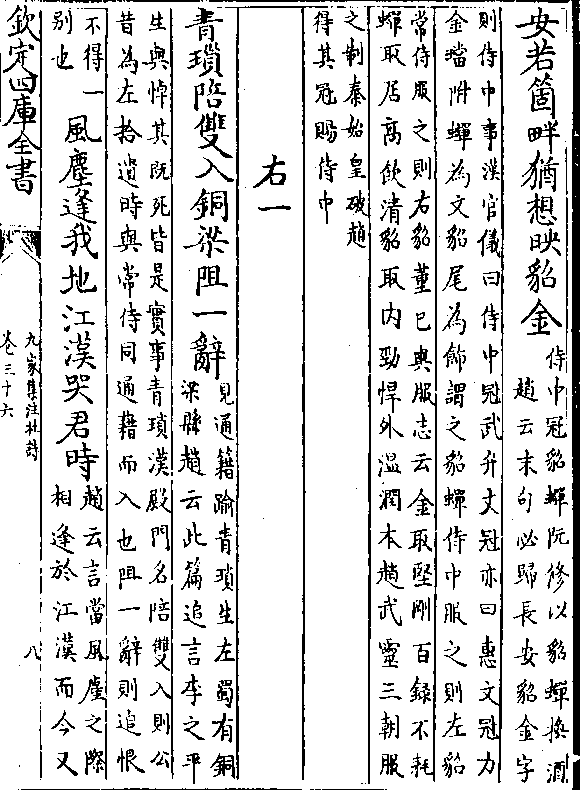 安若箇畔猶想映貂金
侍中冠貂蟬阮修以貂蟬換酒
趙云末句必歸長安貂金字
則侍中事漢官儀曰侍中冠武弁丈冠亦曰惠文冠力
金璫附蟬為文貂尾為飾謂之貂蟬侍中服之則左貂
常侍服之則右貂董巴輿服志云金取堅剛百鍊不耗
蟬取居高飲清貂取内勁悍外温潤本趙武靈王朝服
之制秦始皇破趙
得其冠賜侍中
右一
青瑣陪雙入銅梁阻一辭
見通籍踰青瑣生左蜀有銅
梁縣趙云此篇追言李之平
生與悼其既死皆是實事青瑣漢殿門名陪雙入則公
昔為左拾遺時與常侍同通籍而入也阻一辭則追恨
不得一
别也
風塵逢我地江漢哭君時
趙云言當風塵之際
相逢於江漢而今又
欽定四庫全書
九家集注杜詩
卷三十六
八